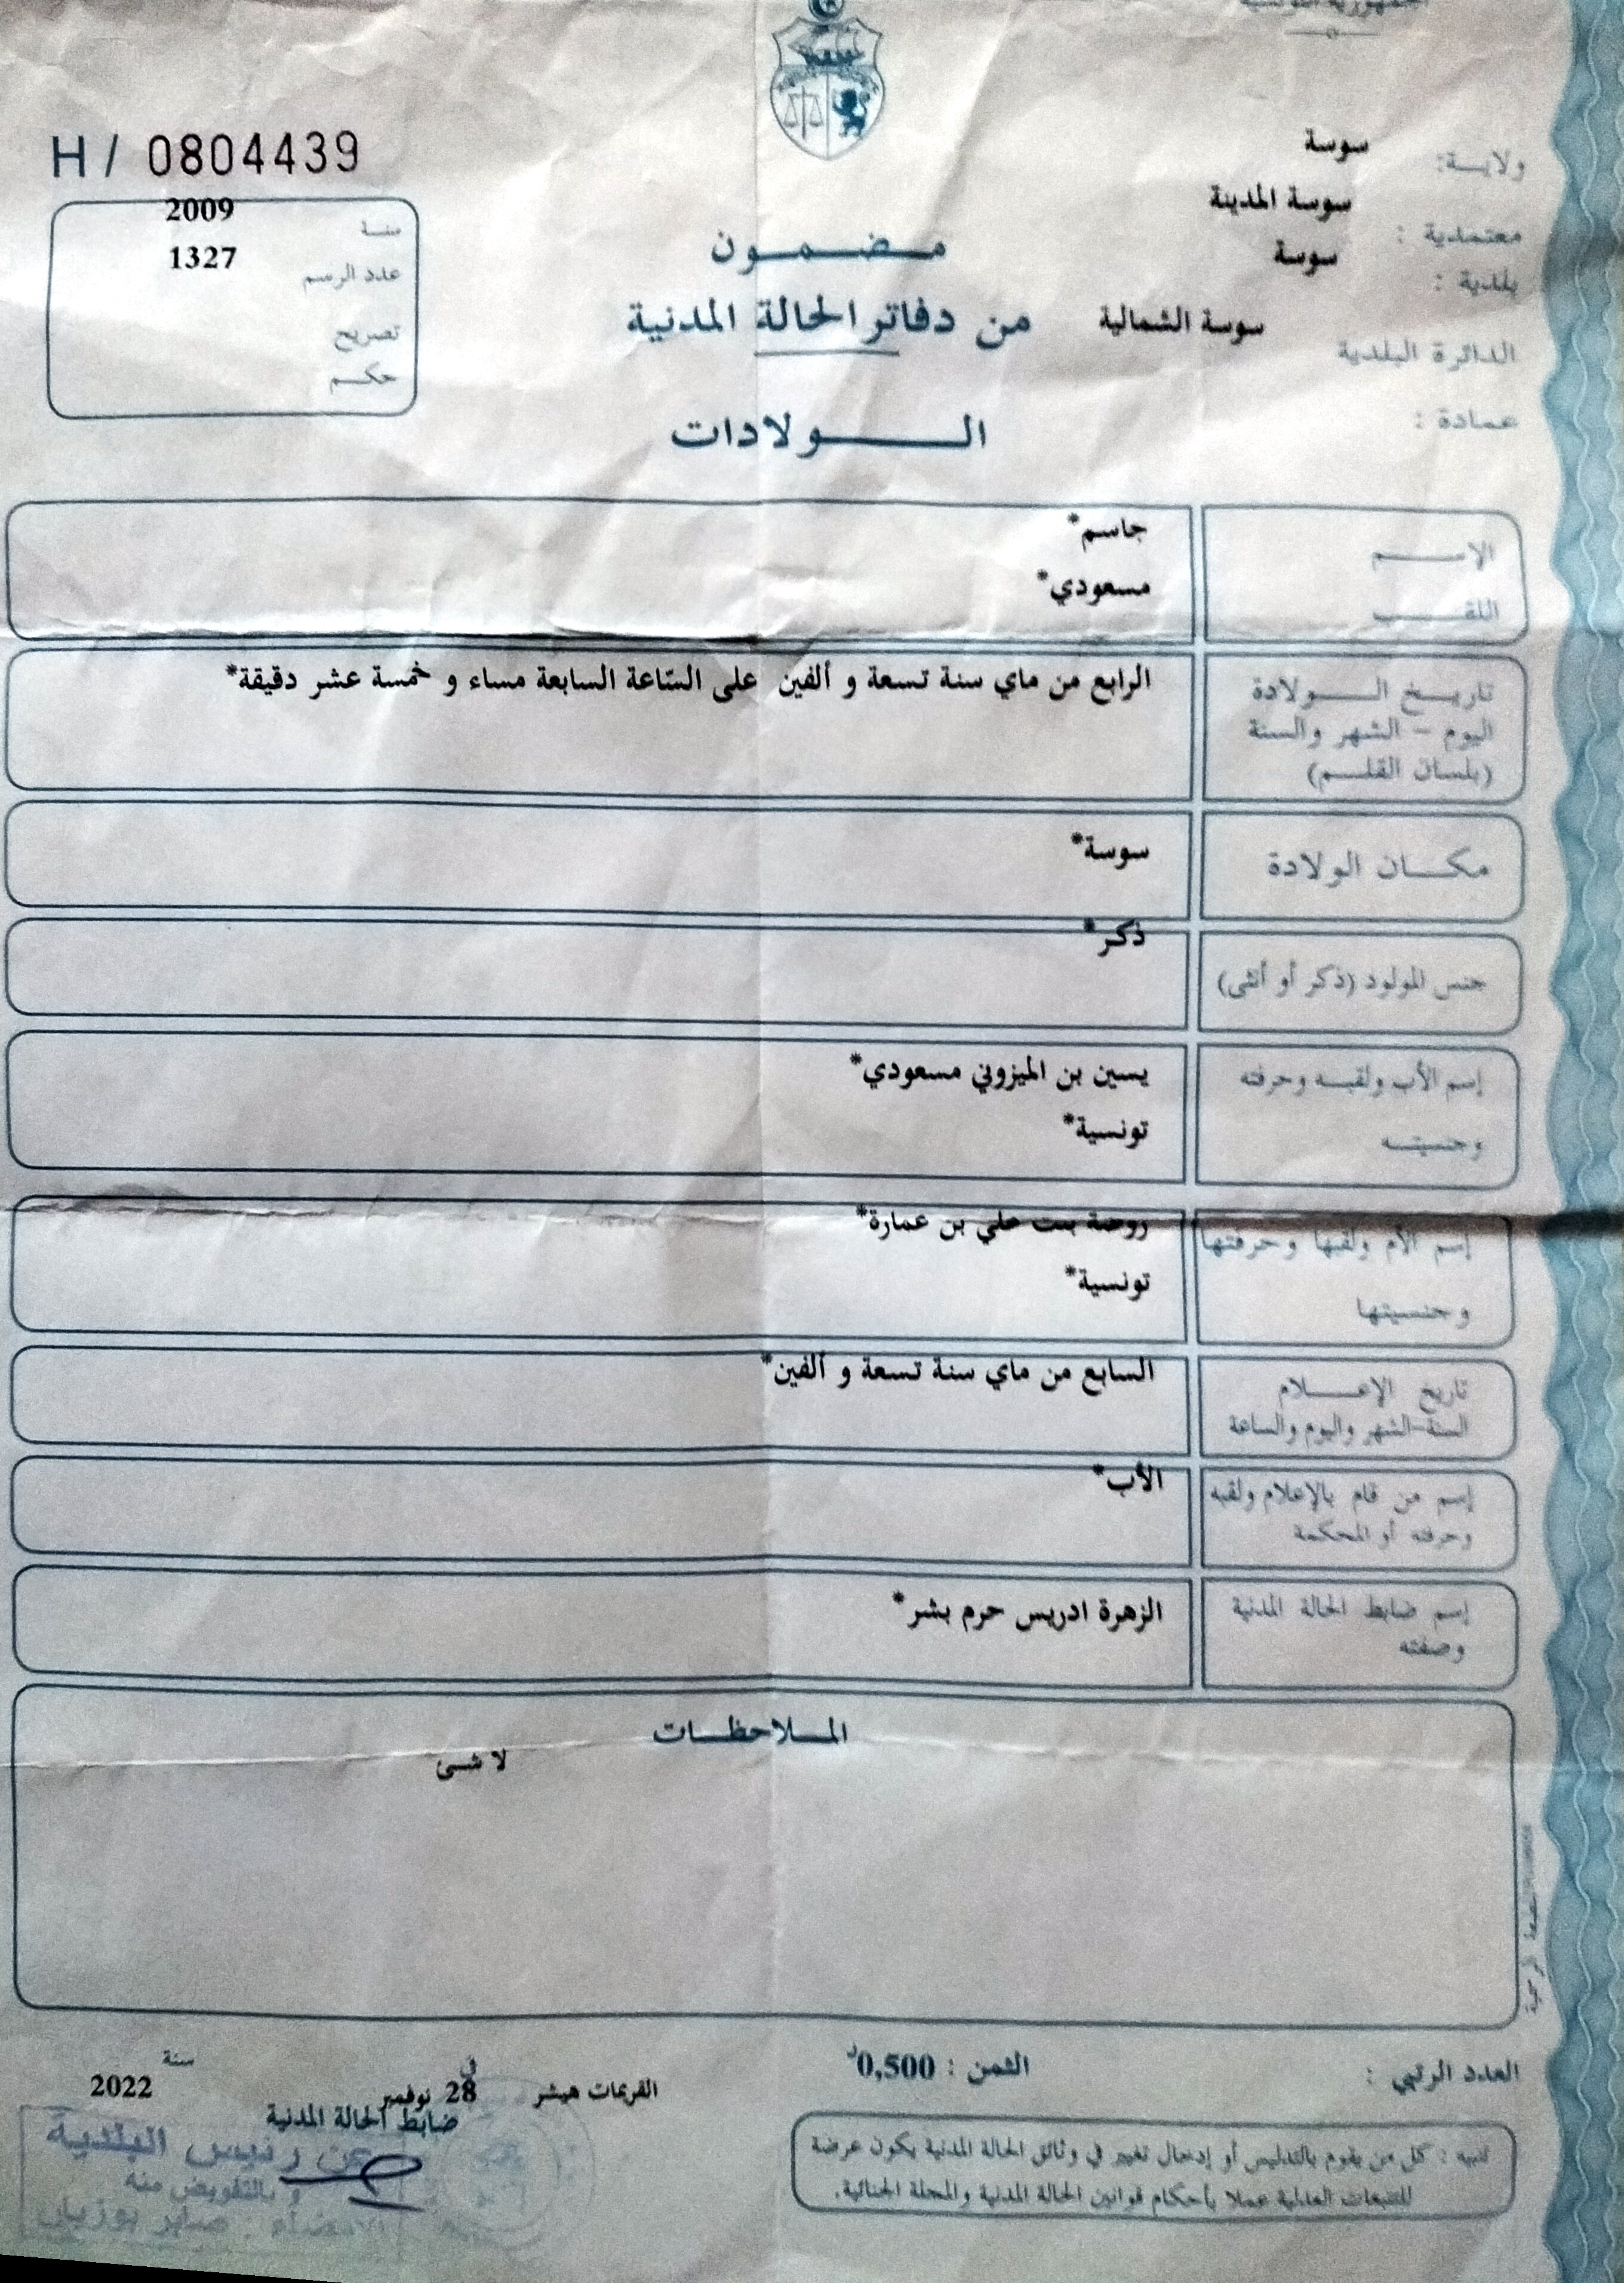 الجمهورية التونسية
H / 0804439
ولايـــة: سوسة
معتمدية : سوسة المدينة
بلدية : سوسة
الدائرة البلدية سوسة الشمالية
عمادة :
سنـة 2009
عدد الرسم 1327
تصريح
حكـــم
مـــضــمـــون
من دفاتر الحالة المدنية
الـــــولادات
الإســـــم جاسم*
اللقـــــب مسعودي*
تاريـــخ الـــــولادة الرابع من ماي سنة تسعة و ألفين على السّاعة السابعة مساء و خمسة عشر دقيقة*
اليوم – الشهر والسنة
(بلسان القلـــم)
مكـــان الولادة سوسة*
جنس المولود (ذكر أو أنثى) ذكر*
إسم الأب ولقبـــه وحرفته يسين بن الميزوني مسعودي*
وجنسيتـــه تونسية*
إسم الأم ولقبها وحرفتها بنت علي بن عمارة*
وجنسيتها تونسية*
تاريخ الإعـــلام السابع من ماي سنة تسعة و ألفين*
السنة-الشهر واليوم والساعة
إسم من قام بالإعلام ولقبه الأب*
وحرفته أو المحكمة
إسم ضابط الحالة المدنية الزهرة ادريس حرم بشر*
وصفته
المــلاحظـــات
لا شـئ
العدد الرتبي :
الثمن : 0,500د
القريمات هيشر في 28 نوفمبر سنة 2022
ضابط الحالة المدنية
عن رئيس البلدية
و بالتفويض منه
الامضاء : صابر بوزيان
تنبيه : كل من يقوم بالتدليس أو إدخال تغيير في وثائق الحالة المدنية يكون عرضة
للتتبعات العدلية عملا بأحكام قوانين الحالة المدنية والمجلة الجنائية.